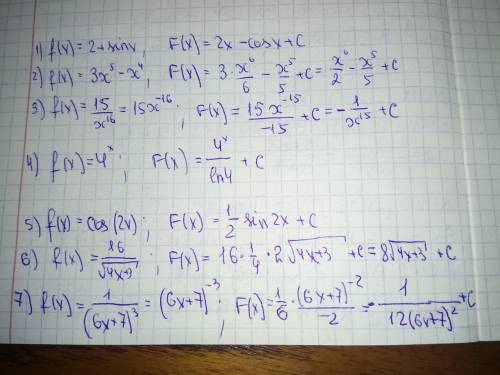 1) f(x)=2+sinx, F(x)=2x-cosx+C
2) f(x)=3x⁵-x⁴, F(x)=3·x⁶/6-x⁵/5+C=x⁶/2-x⁵/5+C
3) f(x)=15/x¹⁶=15x⁻¹⁶; F(x)=15x⁻¹⁵/-15+C=-1/x¹⁵+C
4) f(x)=4ˣ; F(x)=4ˣ/ln4+C
5) f(x)=cos(2x); F(x)=1/2 sin2x+C
6) f(x)=16/√4x+3; F(x)=16·1/4·2√4x+3+C=8√4x+3+C
7) f(x)=1/(6x+7)³=(6x+7)⁻³; F(x)=1/6·(6x+7)⁻²/-2=-1/12(6x+7)²+C